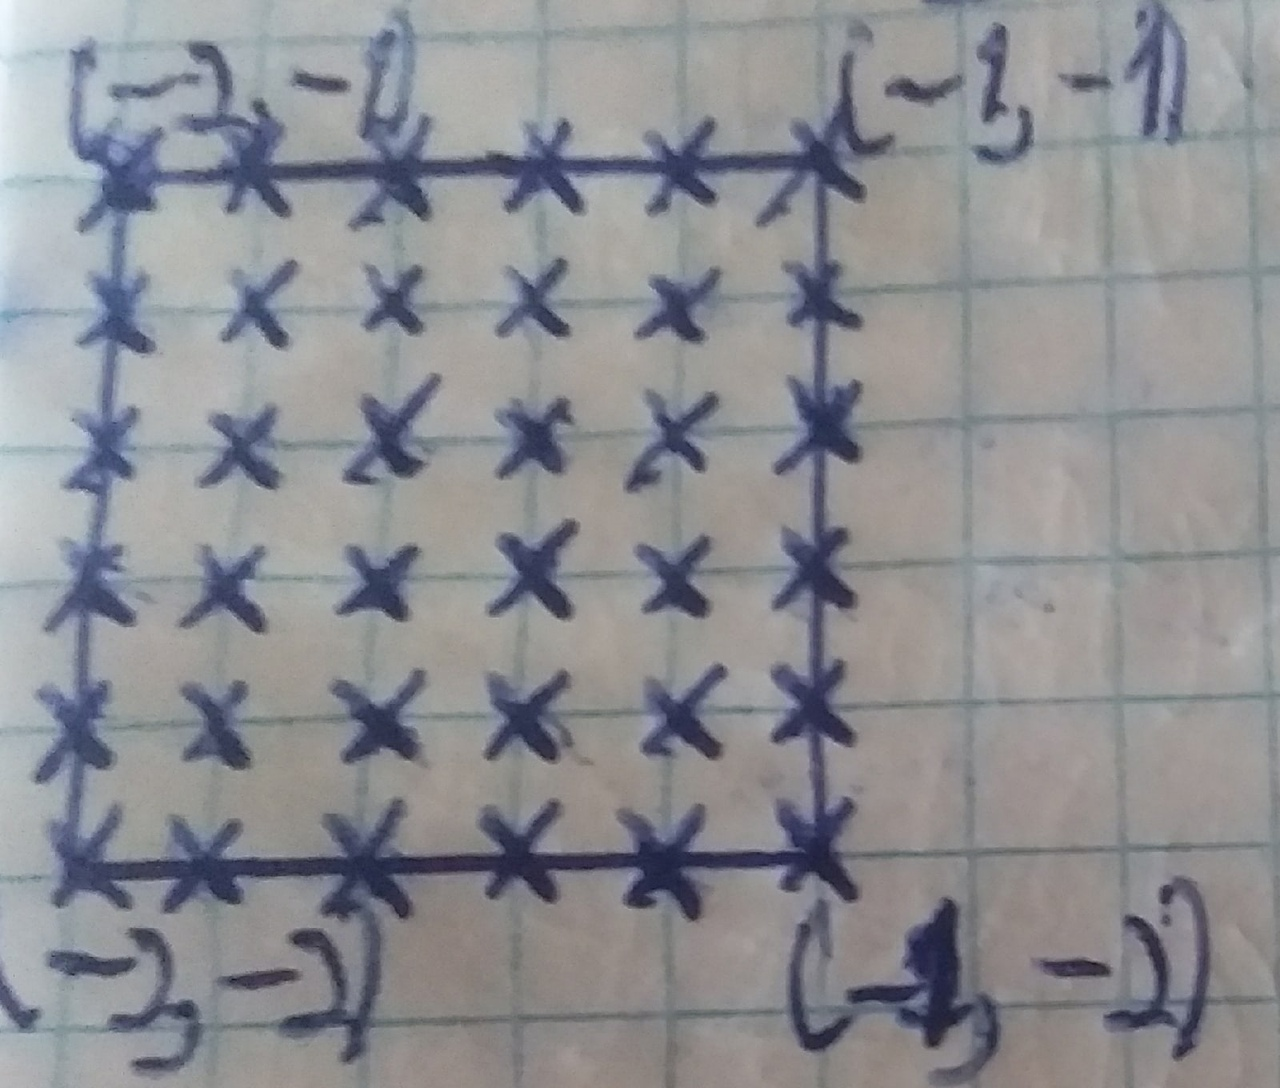 (-2, -1) (-1, -1)
(-2, -2) (-1, -2)